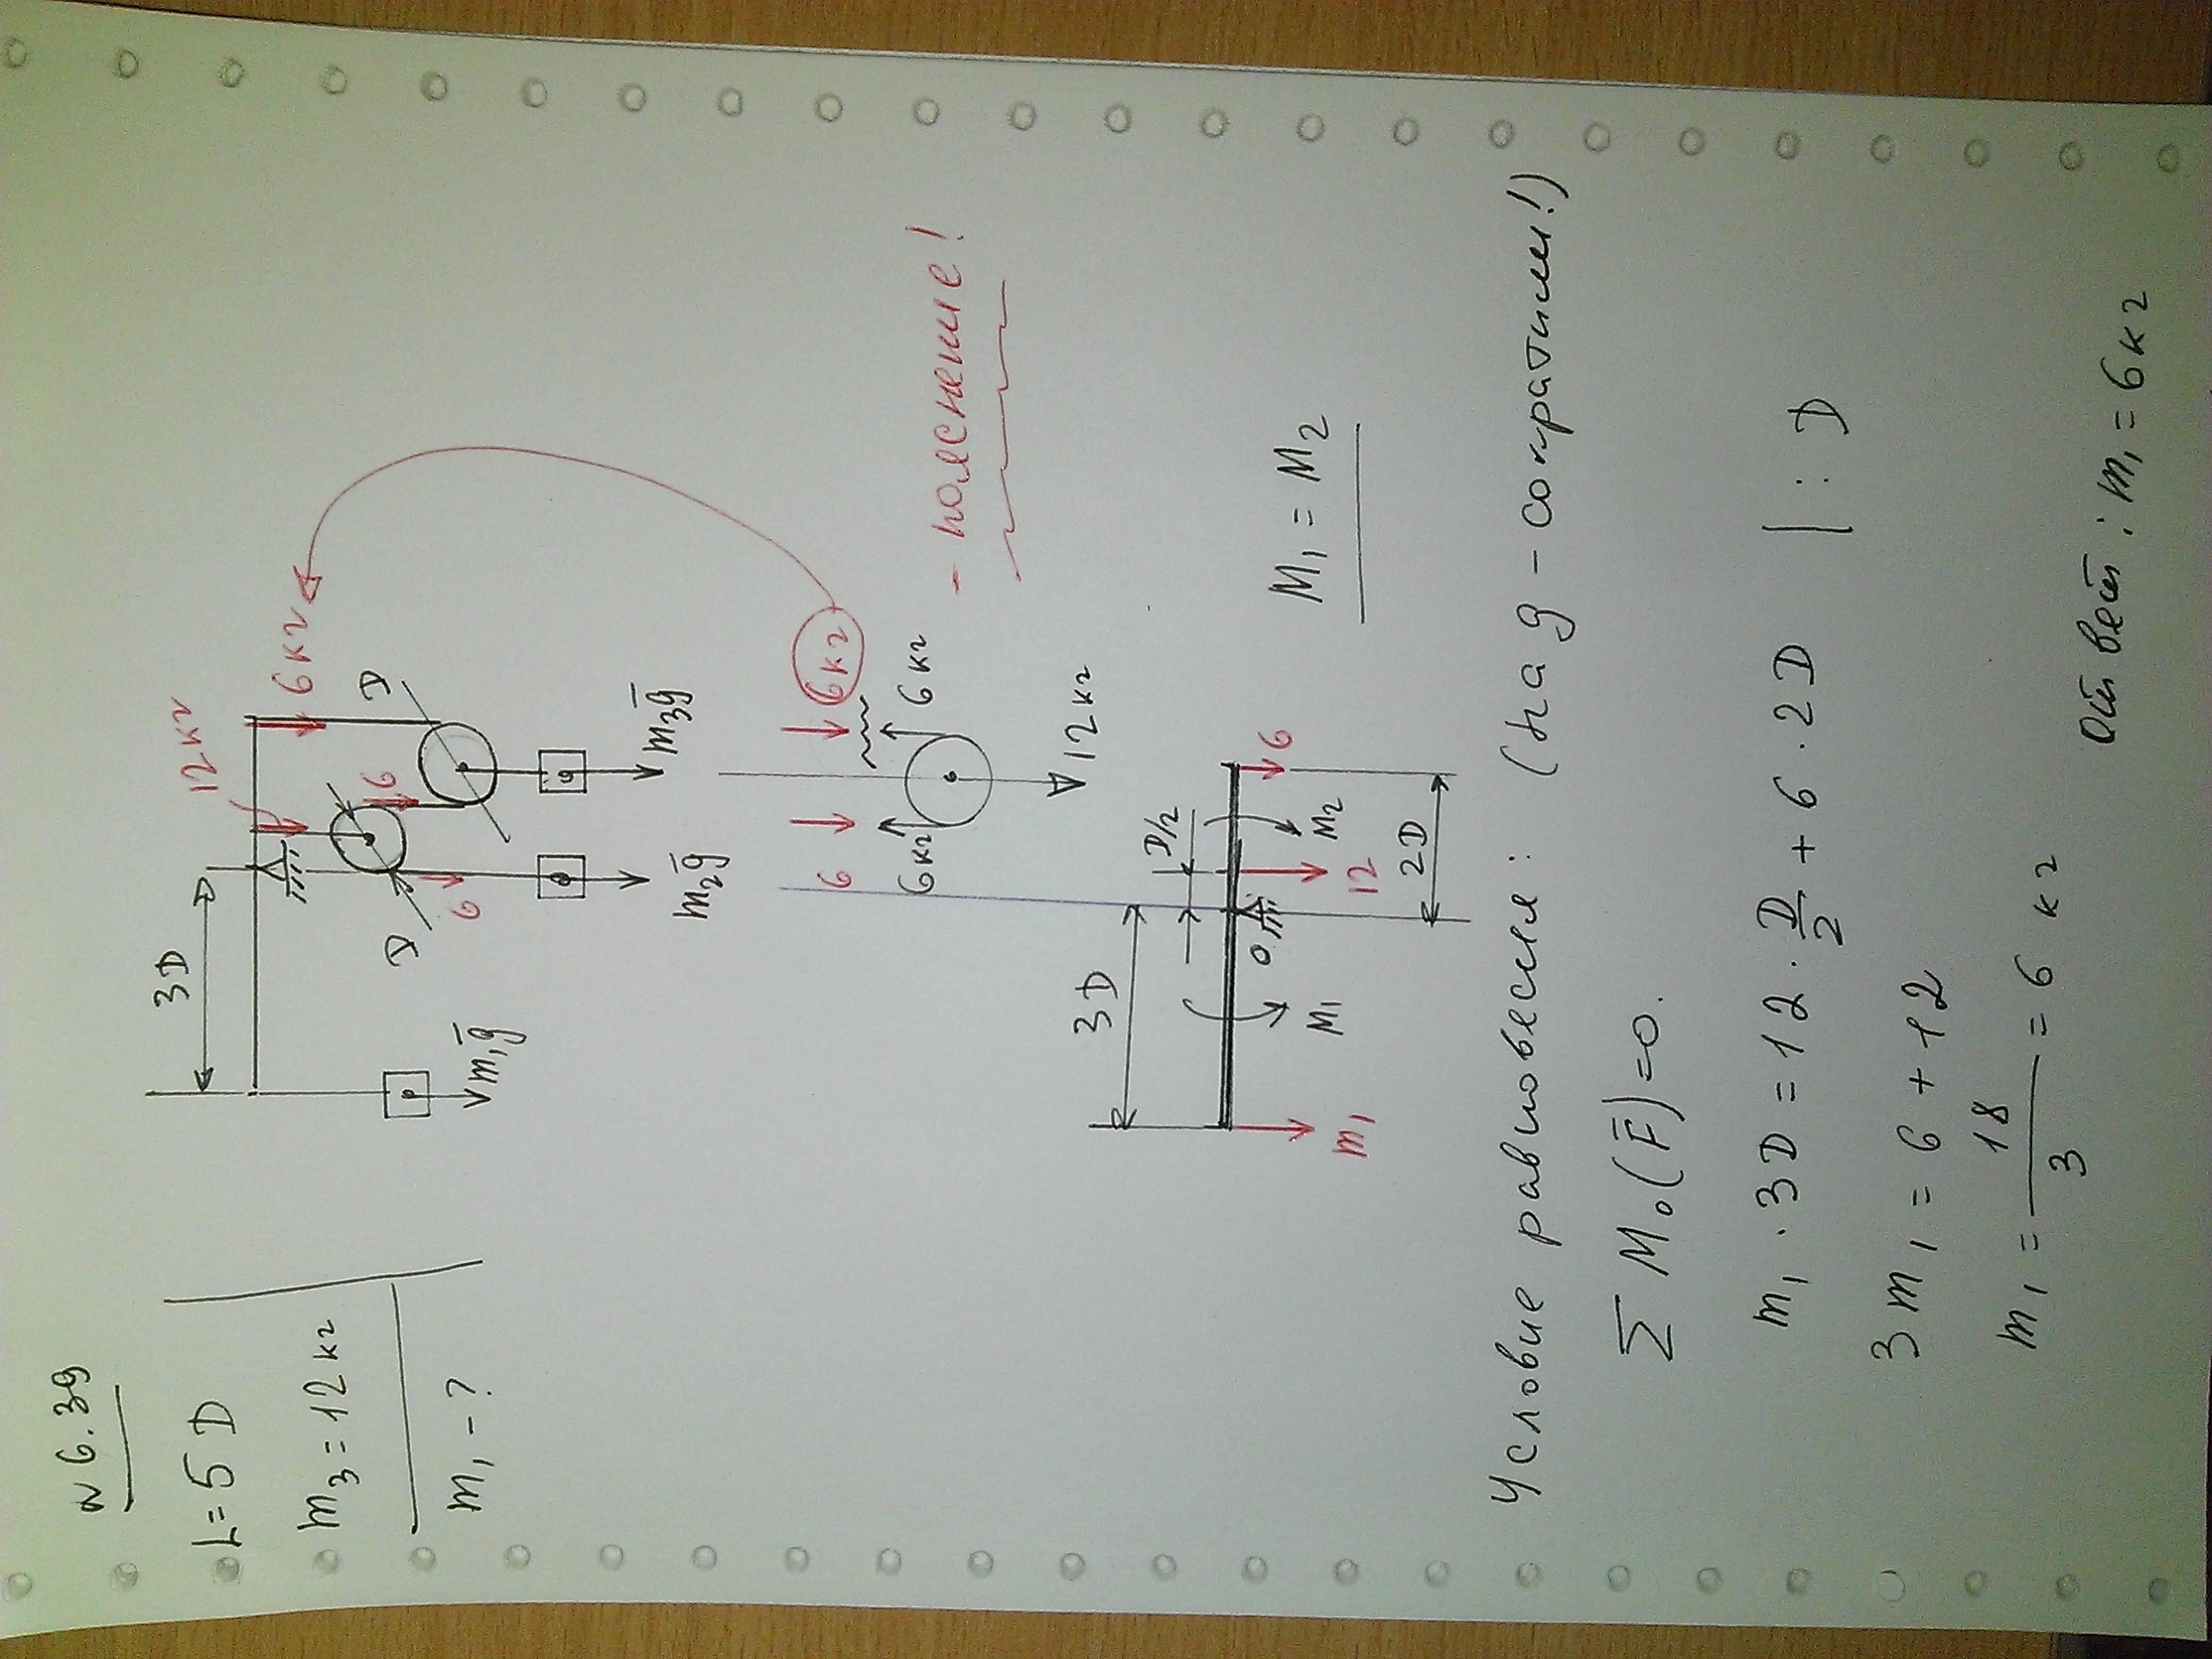 № 6.39
L = 5D
m₃ = 12 кг
m₁ - ?
3D
12 кг
6 кг
D
D
6
6
m₁g̅
m₂g̅
m₃g̅
6
6 кг
6 кг
6 кг
12 кг
- пояснение!
3D
D/2
m₁
M₁
O
12
M₂
6
2D
M₁ = M₂
Условие равновесия: (на g - сократим!)
∑ M₀(F̅) = 0.
m₁ · 3D = 12 · D/2 + 6 · 2D | : D
3m₁ = 6 + 12
m₁ = 18/3 = 6 кг
Ответ: m₁ = 6 кг